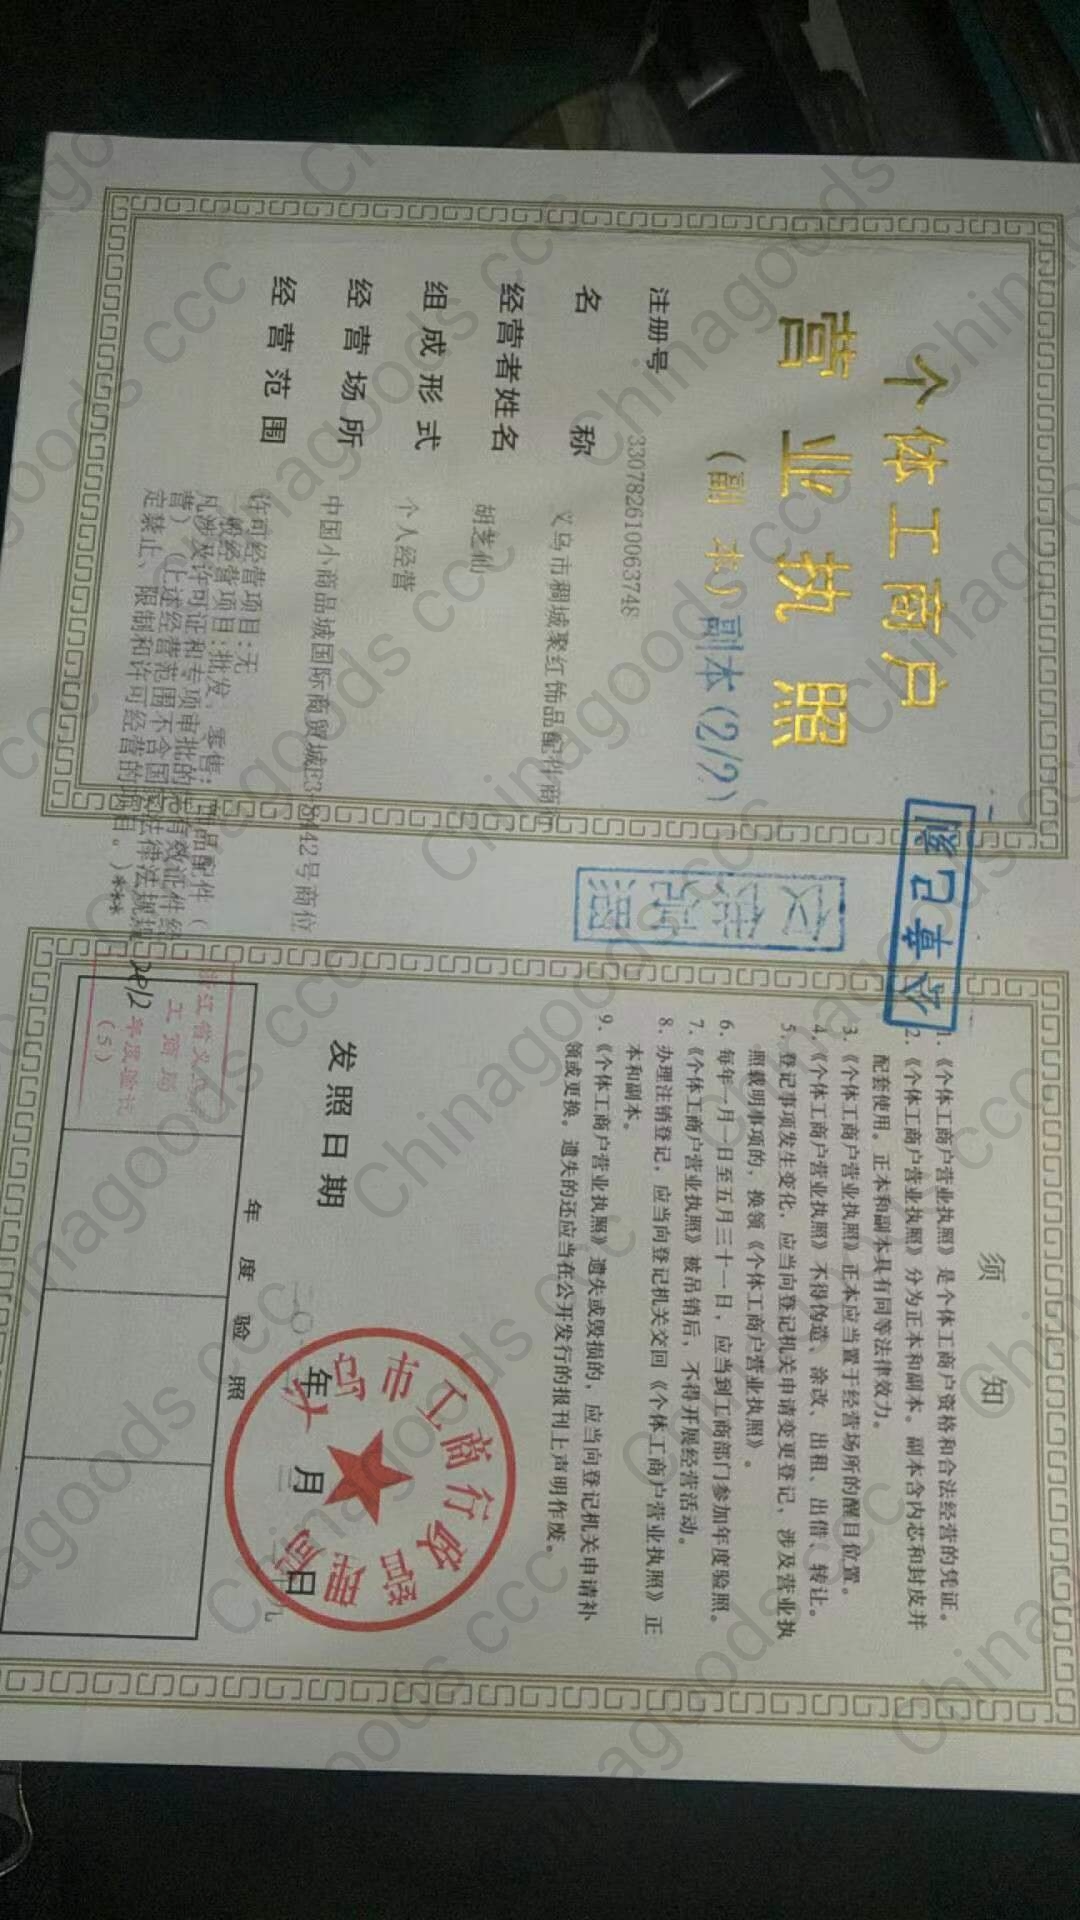 个体工商户
营业执照
（副 本）副本(2/2)
注册号 330782610063748
名 称 义乌市稠城聚红饰品配件商行
经营者姓名 胡芝仙
组成形式 个人经营
经营场所 中国小商品城国际商贸城E3-8442号商位
经营范围 许可经营项目:无
一般经营项目:批发、零售:饰品配件（
凡涉及许可证和专项审批的凭有效证件经
营）（上述经营范围不含国家法律法规规
定禁止、限制和许可经营的项目。）***
须 知
1.《个体工商户营业执照》是个体工商户资格和合法经营的凭证。
2.《个体工商户营业执照》分为正本和副本。副本含内芯和封皮并
配套使用。正本和副本具有同等法律效力。
3.《个体工商户营业执照》正本应当置于经营场所的醒目位置。
4.《个体工商户营业执照》不得伪造、涂改、出租、出借、转让。
5.登记事项发生变化，应当向登记机关申请变更登记，涉及营业执
照载明事项的，换领《个体工商户营业执照》。
6.每年一月一日至五月三十一日，应当到工商部门参加年度验照。
7.《个体工商户营业执照》被吊销后，不得开展经营活动。
8.办理注销登记，应当向登记机关交回《个体工商户营业执照》正
本和副本。
9.《个体工商户营业执照》遗失或毁损的，应当向登记机关申请补
领或更换。遗失的还应当在公开发行的报刊上声明作废。
义乌市工商行政管理局
发照日期 年 月 日
年度验照
工商局
2012年度验讫
(5)
Chinagoods ccc